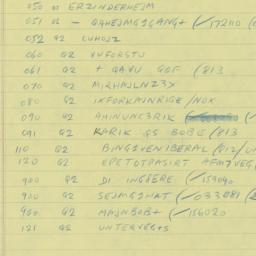 050 02 ERZINDERHEJM
051 02 - QAHEJMG1GANG+ (✓172110 (
052 02 CUHOJZ
060 02 VVFORSTJ
061 02 + QAVU GOF (813
070 02 MIRHAJLNZ3X
080 02 IXFORKAJNRIGE/NOX
090 02 AHINUNC3RIK (✓
091 02 KARIK QS BOBU (813
110 02 BINGIVENIBERAL (812/UN
120 02 EPETOTPASIRT AFM7VEG,
900 02 DI INGSERE (✓159090
900 02 SEJMG1NAT (✓033081 (
900 02 MAJNBOB+ (✓156020
121 02 UNTERVEG+S